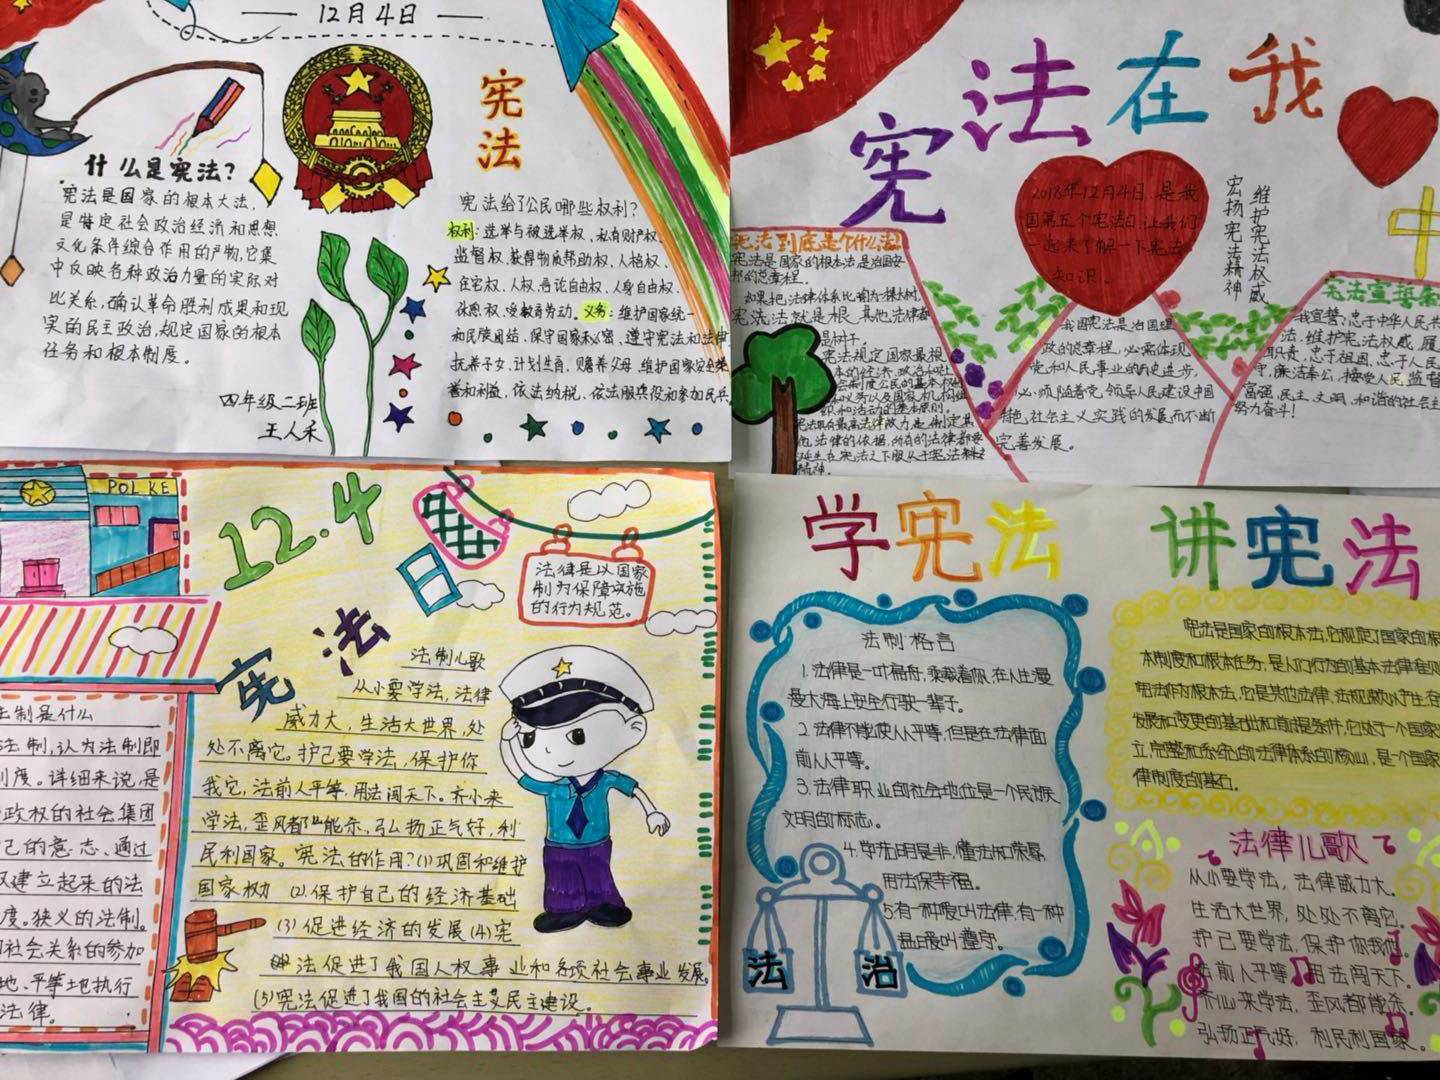 12月4日
宪法
什么是宪法?
宪法是国家的根本大法,
是特定社会政治经济和思想
文化条件综合作用的产物,它集
中反映各种政治力量的实际对
比关系,确认革命胜利成果和现
实的民主政治,规定国家的根本
任务和根本制度。
四年级二班
王人禾
宪法给了公民哪些权利?
权利:选举与被选举权、私有财产权、
监督权、获得物质帮助权、人格权、
住宅权、人权、言论自由权、人身自由权、
休息权、受教育劳动。义务:维护国家统一
和民族团结、保守国家秘密、遵守宪法和法律
抚养子女、计划生育、赡养父母、维护国家安全荣
誉和利益、依法纳税、依法服兵役和参加民兵
宪法在我
2018年12月4日,是我
国第五个宪法日,让我们
一起来了解一下宪法
知识。
维护宪法权威
宏扬宪法精神
中
宪法到底是个什么法
宪法是国家的根本法是治国安
邦的总章程。
如果把法律体系比喻为一棵大树,
宪法就是根,其他法律都
是树干。
宪法规定国家最根
本的经济、政治和社
会制度公民的基本权利
和义务以及国家机构组
织和活动的基本原则。
我国宪法是治国理
政的总章程,必需体现
党和人民事业的历史进步,
必须随着党领导人民建设中国
特色社会主义实践的发展而不断
完善发展。
宪法宣誓
我宣誓:忠于中华人民共
法,维护宪法权威,履
职责,忠于祖国、忠于人民
守、廉洁奉公,接受人民监督
富强、民主、文明、和谐的社会主
努力奋斗!
POLKE
12.4
宪法日
法律是以国家
制为保障实施
的行为规范。
法制儿歌
从小要学法,法律
威力大,生活大世界,处
处不离它。护己要学法,保护你
我它,法前人平等,用法闯天下。齐小来
学法,歪风都能杀,弘扬正气好,利
民利国家。宪法的作用?(1)巩固和维护
国家权力 (2).保护自己的经济基础
(3)促进经济的发展(4)宪
法促进了我国人权事业和各项社会事业发展。
(5)宪法促进了我国的社会主义民主建设。
法制是什么
法制,认为法制即
制度。详细来说,是
政权的社会集团
己的意志、通过
权建立起来的法
度。狭义的法制。
社会关系的参加
地、平等地执行
法律。
学宪法 讲宪法
法制格言
1.法律是一叶福舟,乘载着你,在人生漫
漫大海上安全行驶一辈子。
2.法律不能使人人平等,但是在法律面
前人人平等。
3.法律职业的社会地位是一个民族
文明的标志。
4.学法明是非,懂法知荣辱
用法保幸福。
5有一种爱叫法律,有一种
温暖叫遵守。
法治
宪法是国家的根本法,它规定了国家的根
本制度和根本任务,是人们行为的基本法律准则
宪法作为根本法,它是其他法律、法规赖以产生、存
发展和变更的基础和前提条件,它处于一个国家
立、完整和系统的法律体系的核心,是一个国家
律制度的基石。
法律儿歌
从小要学法,法律威力大。
生活大世界,处处不离它。
护己要学法,保护你我他。
法前人平等,用法闯天下。
齐心来学法,歪风都能杀。
弘扬正气好,利民利国家。